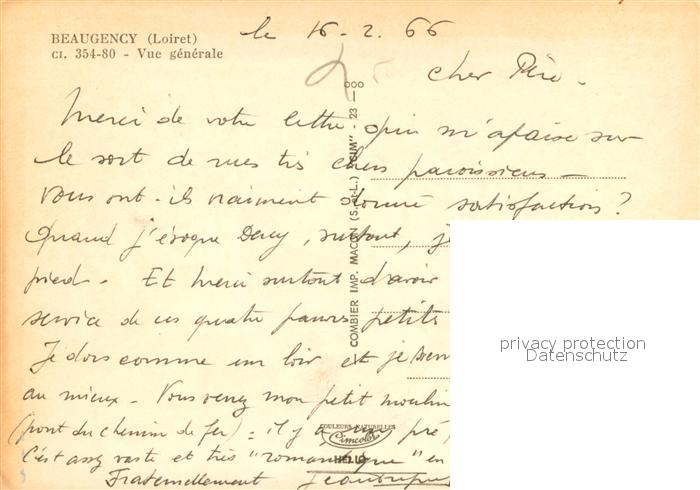 BEAUGENCY (Loiret)
CI. 354-80 - Vue générale
le 16-2.66
Cher Père.
Merci de votre lettre. qui m'apaise sur
le sort de mes très chers paroissiens -
Vous ont-ils vraiment donné satisfaction?
Quand j'évoque Dercy, surtout, je
pied. Et merci surtout d'avoir
service de ces quatre pauvres petits
Je dors comme un loir et je
au mieux. Vous verrez mon petit moulin
(pont du chemin de fer) : il y a un pré
C'est assez vaste et très "romantique" en
Fraternellement
COMBIER IMP. MACON (S.-&-L.) "CIM" - 23 -
COULEURS NATURELLES
Cimcolor
HELIO
privacy protection
Datenschutz